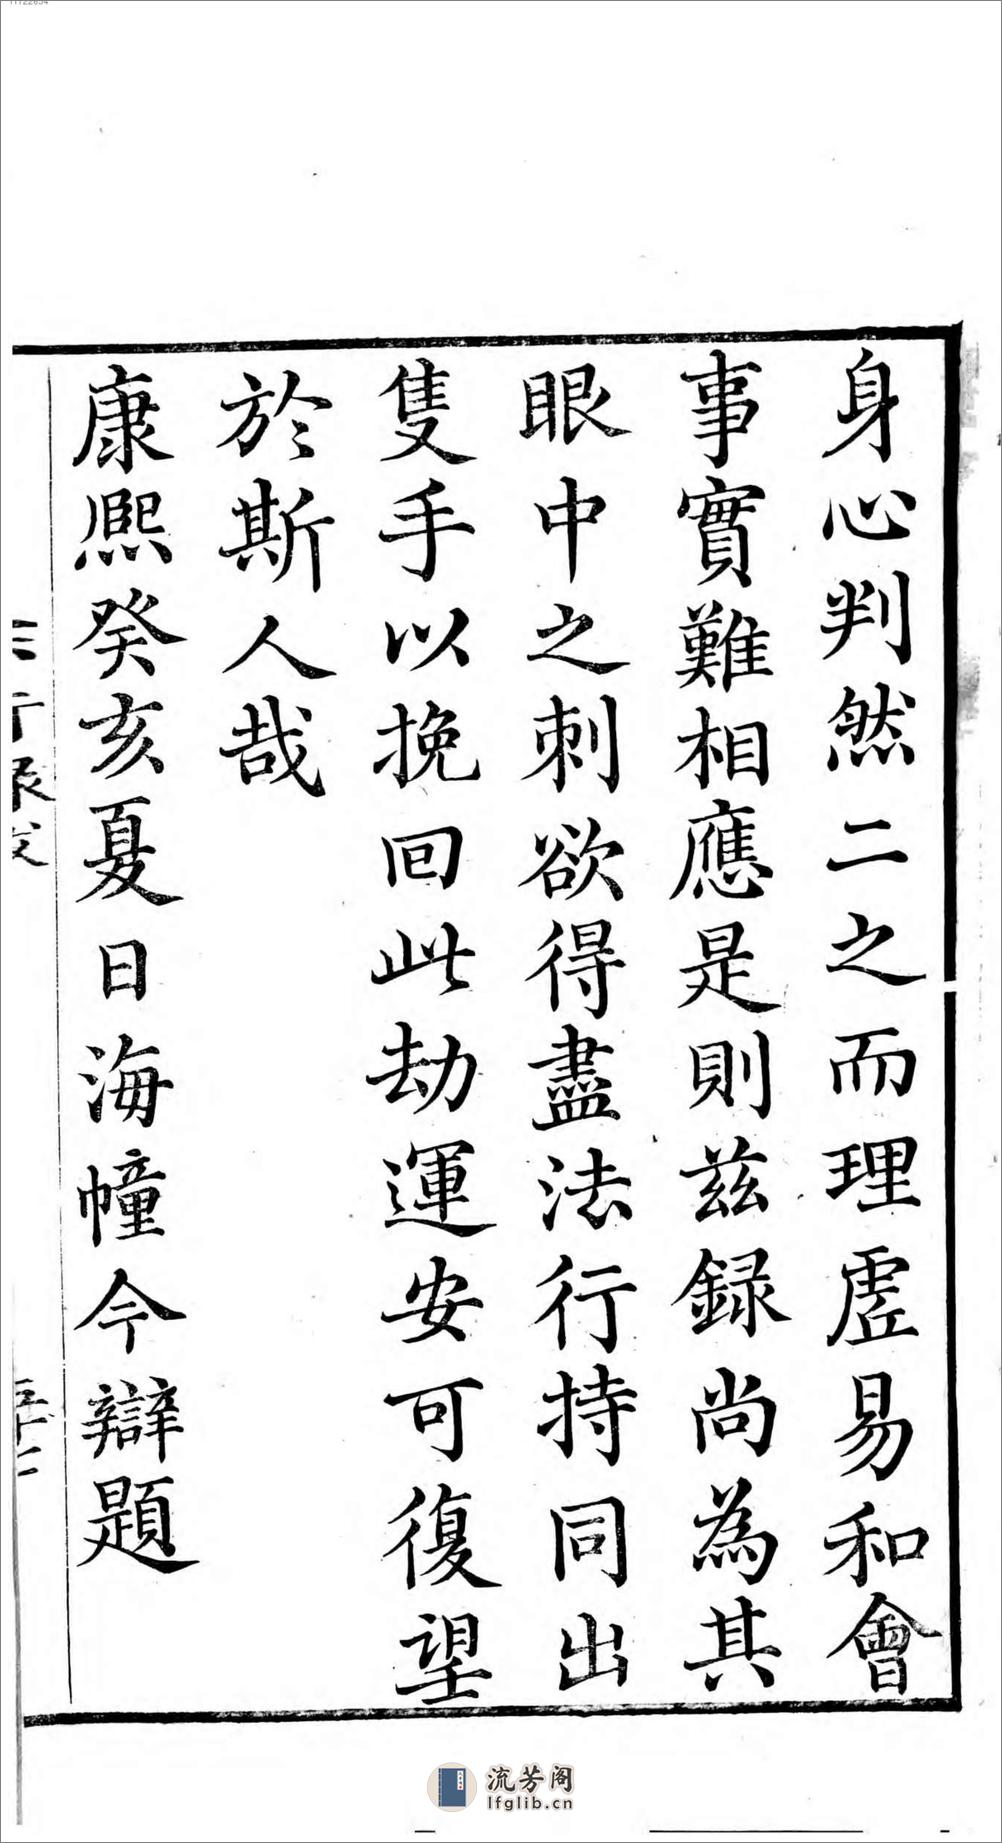 身心判然二之而理虛易和會
事實難相應是則茲録尚為其
眼中之刺欲得盡法行持同出
隻手以挽回此劫運安可復望
於斯人哉
康熙癸亥夏日海幢今辯題
流芳阁
lfglib.cn